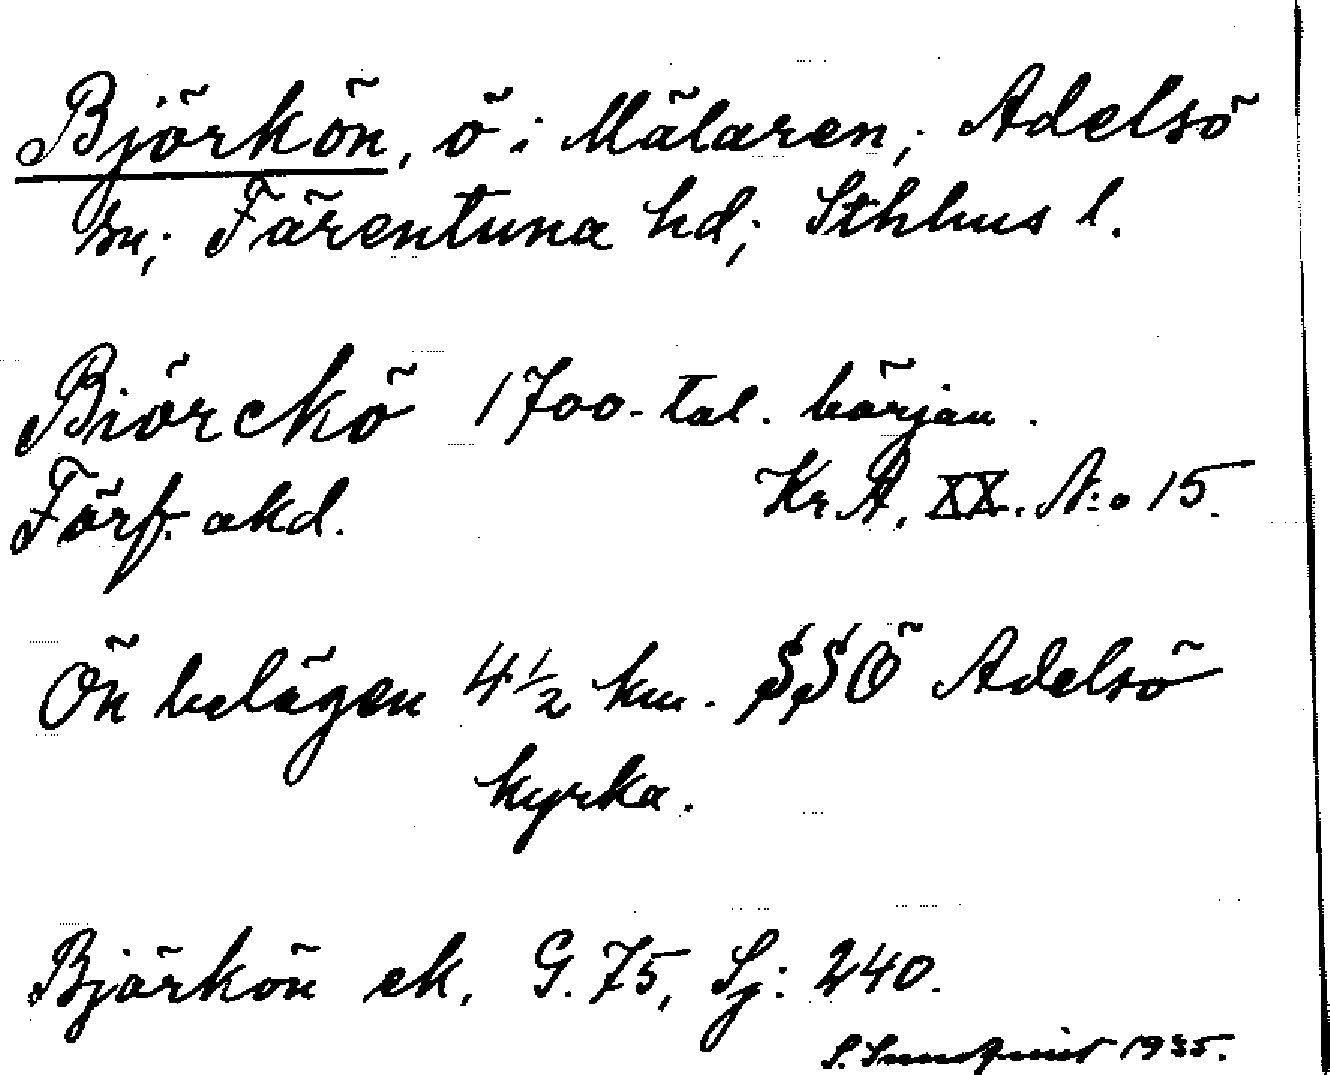 Björkön, ö i Mälaren; Adelsö
sn; Färentuna hd; Sthlms l.
Biörckö 1700-tal. början.
Förf. akd. Kr. A, XX. N:o 15.
Ön belägen 4 1/2 km. SSÖ Adelsö
kyrka.
Björkön ek. G. 75, Sj: 240.
1935.